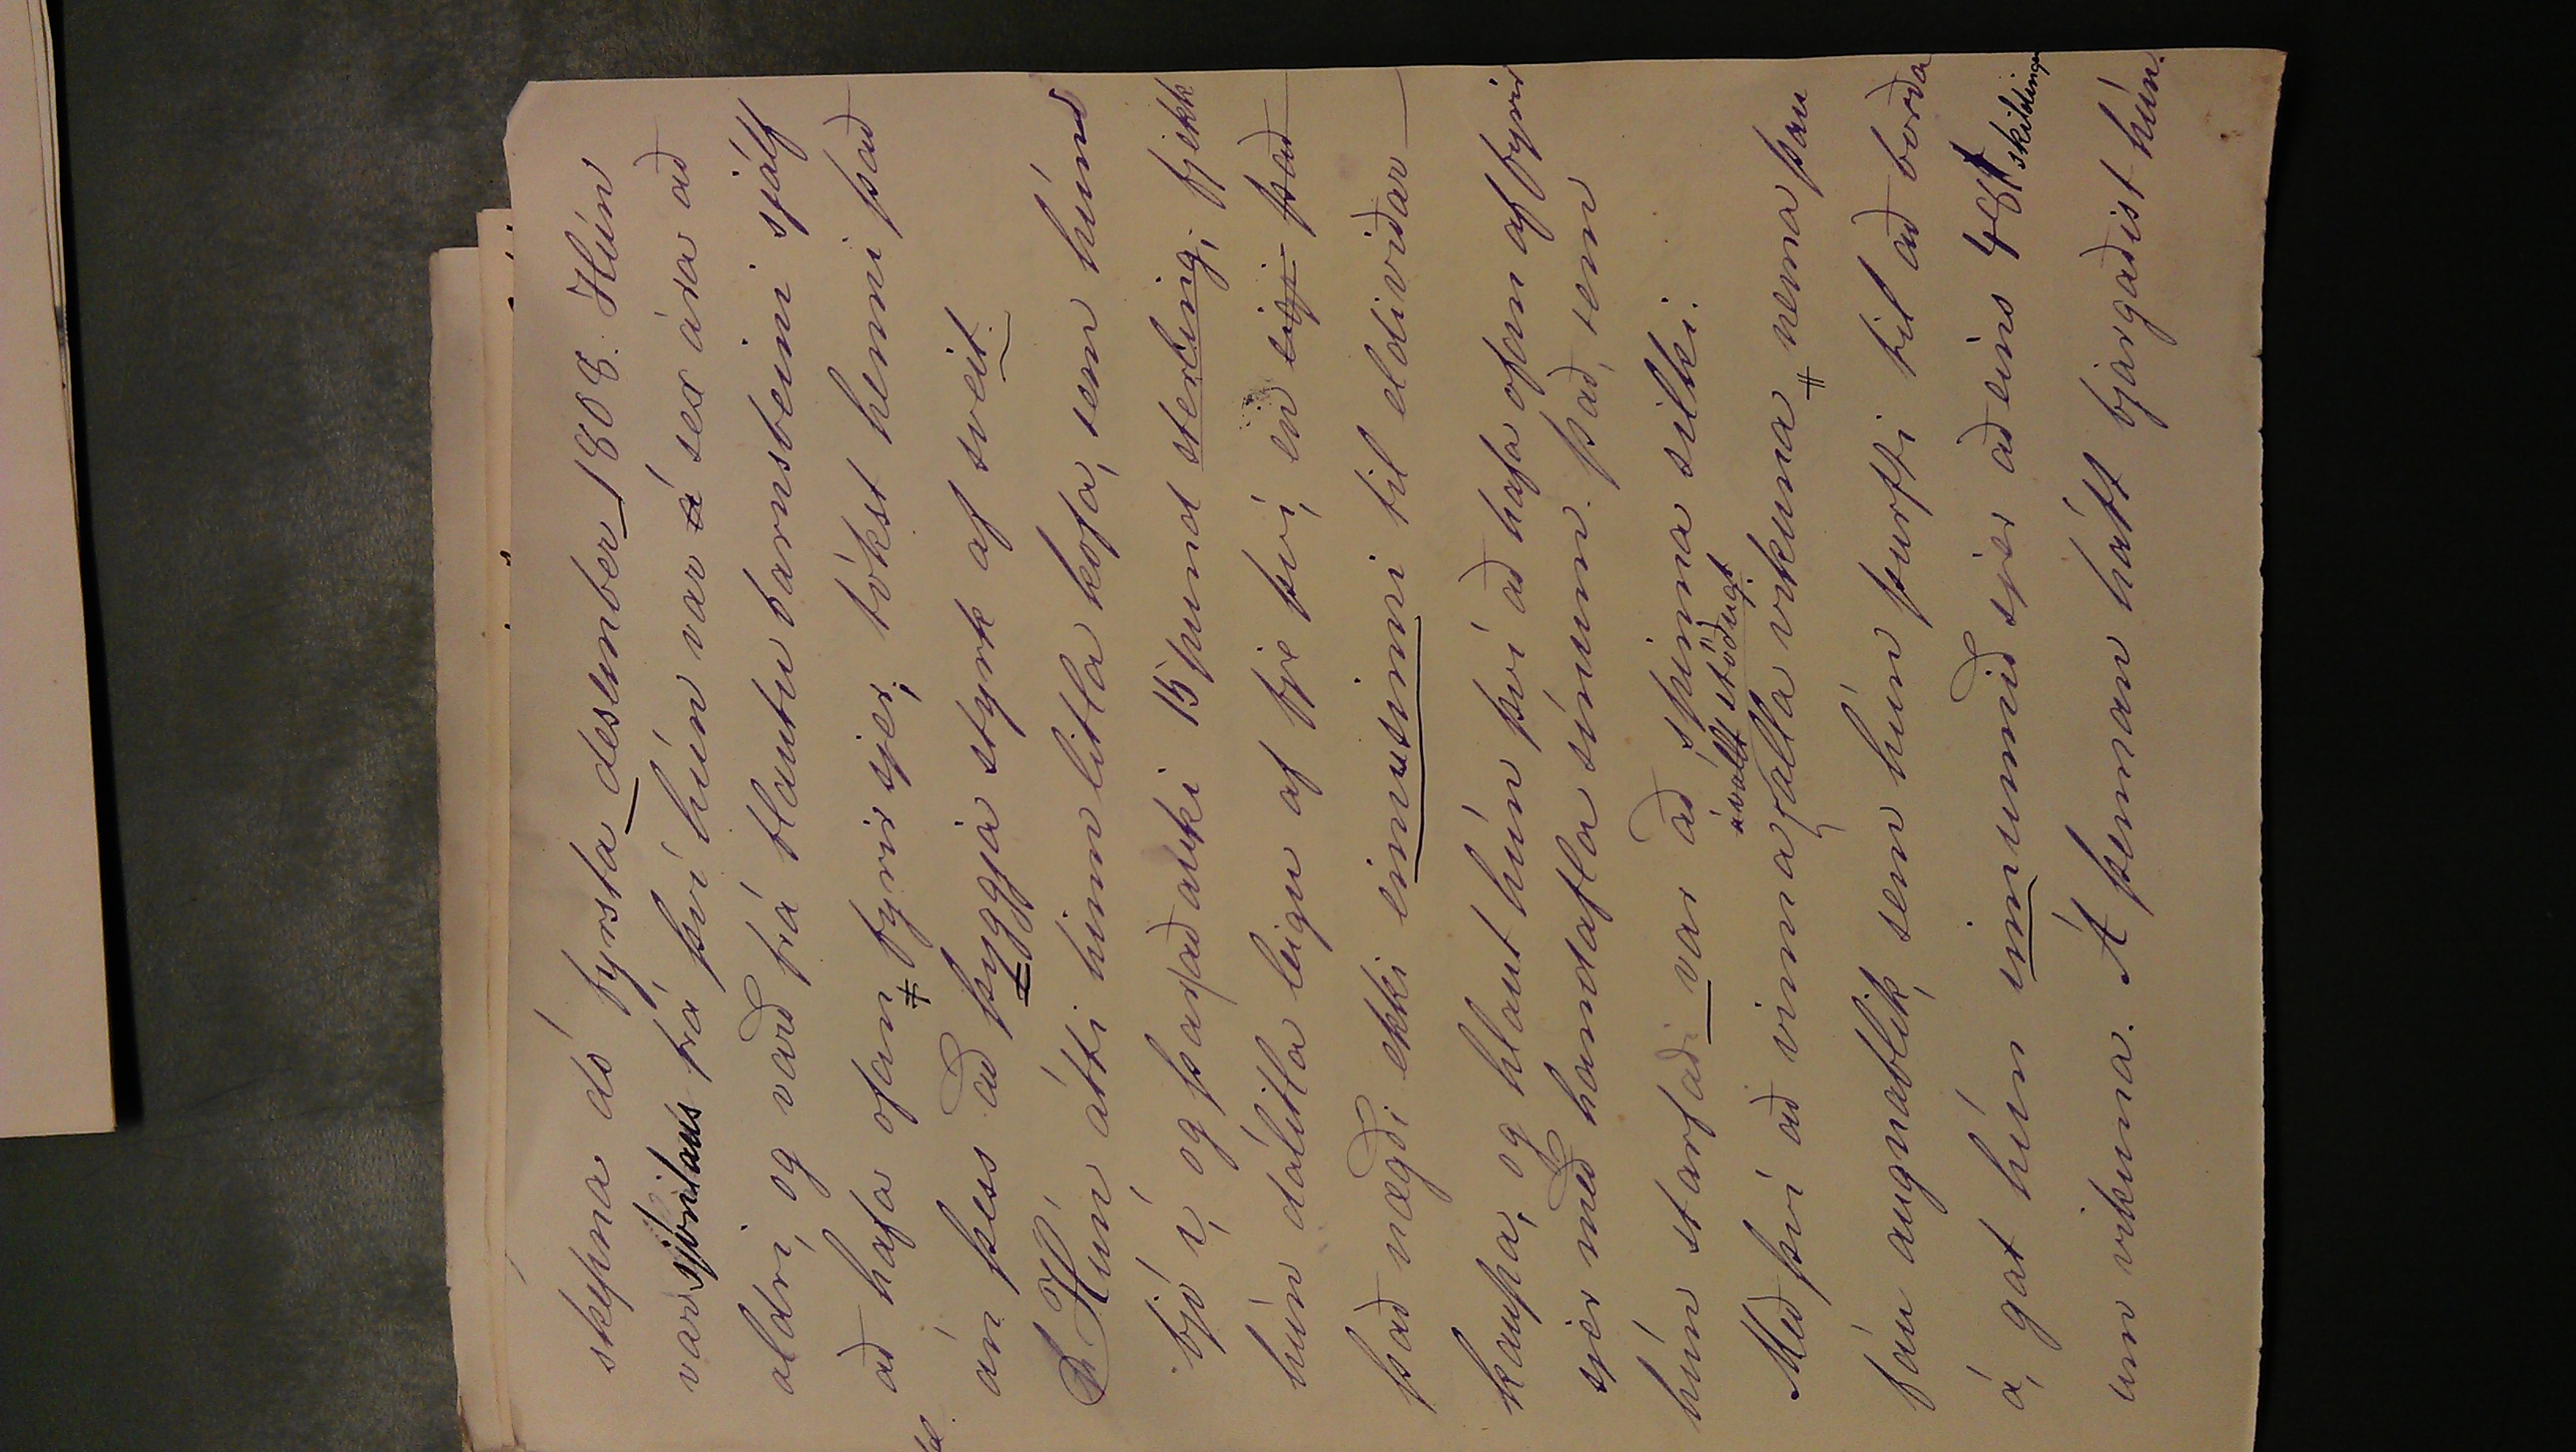 skepna dó fyrsta desember 1808. Hún
var sjónlaus frá því hún var á sex ára að
aldri, og varð frá blautu barnsbeini sjálf
að hafa ofan fyrir sjer; tókst henni það
án þess að þyggja styrk af sveit.
Hún átti hinn litla kofa, sem hún
bjó í, og þar að auki 15 pund sterling; fjekk
hún dálitla leigu af fje því, en eigi það
það nægði ekki einusinni til eldiviðar
kaupa, og hlaut hún því að hafa ofan af fyrir
sjer með handafla sínum. Það, sem
hún starfaði var að spinna silki.
ávallt stöðugt
Með því að vinna alla vikuna nema þau
fáu augnablik, sem hún þurfti til að borða
á, gat hún innunnið sjer að eins 48 skildinga
um vikuna. Á þennan hátt bjargaðist hún